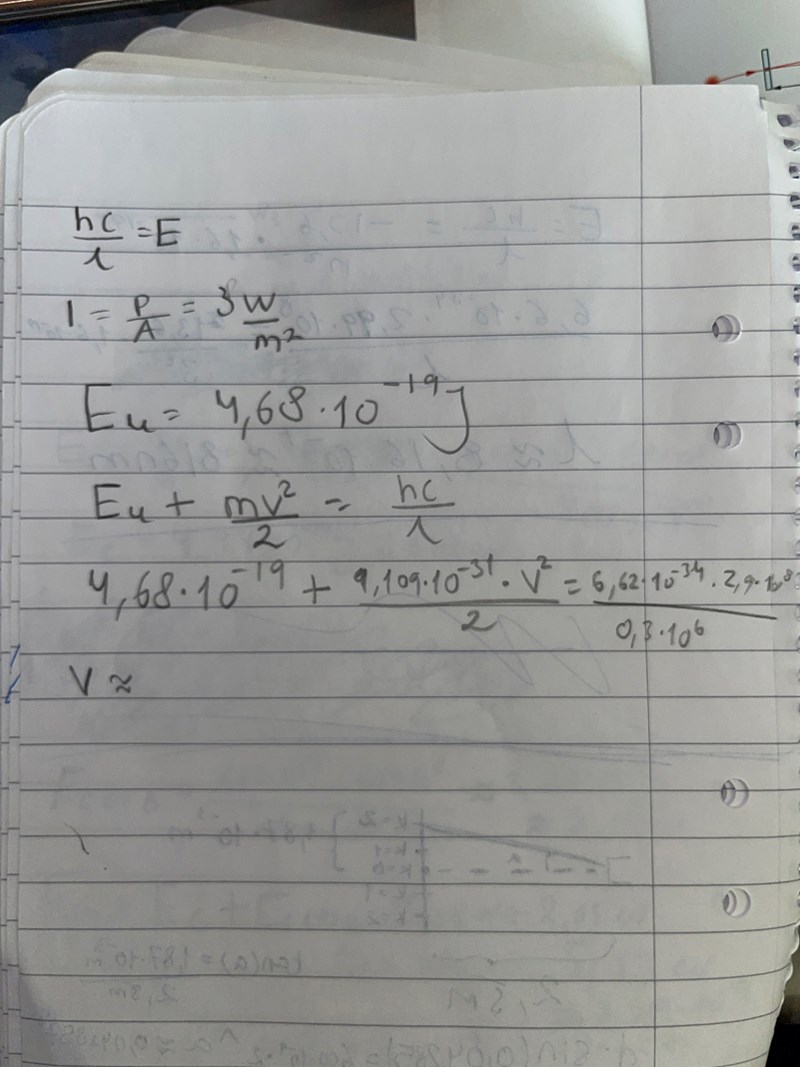 hc/λ = E
I = P/A = 3 W/m²
Eu = 4,68·10⁻¹⁹ J
Eu + mv²/2 = hc/λ
4,68·10⁻¹⁹ + 9,109·10⁻³¹·V²/2 = 6,62·10⁻³⁴·2,9·10⁸/0,3·10⁶
V ≈